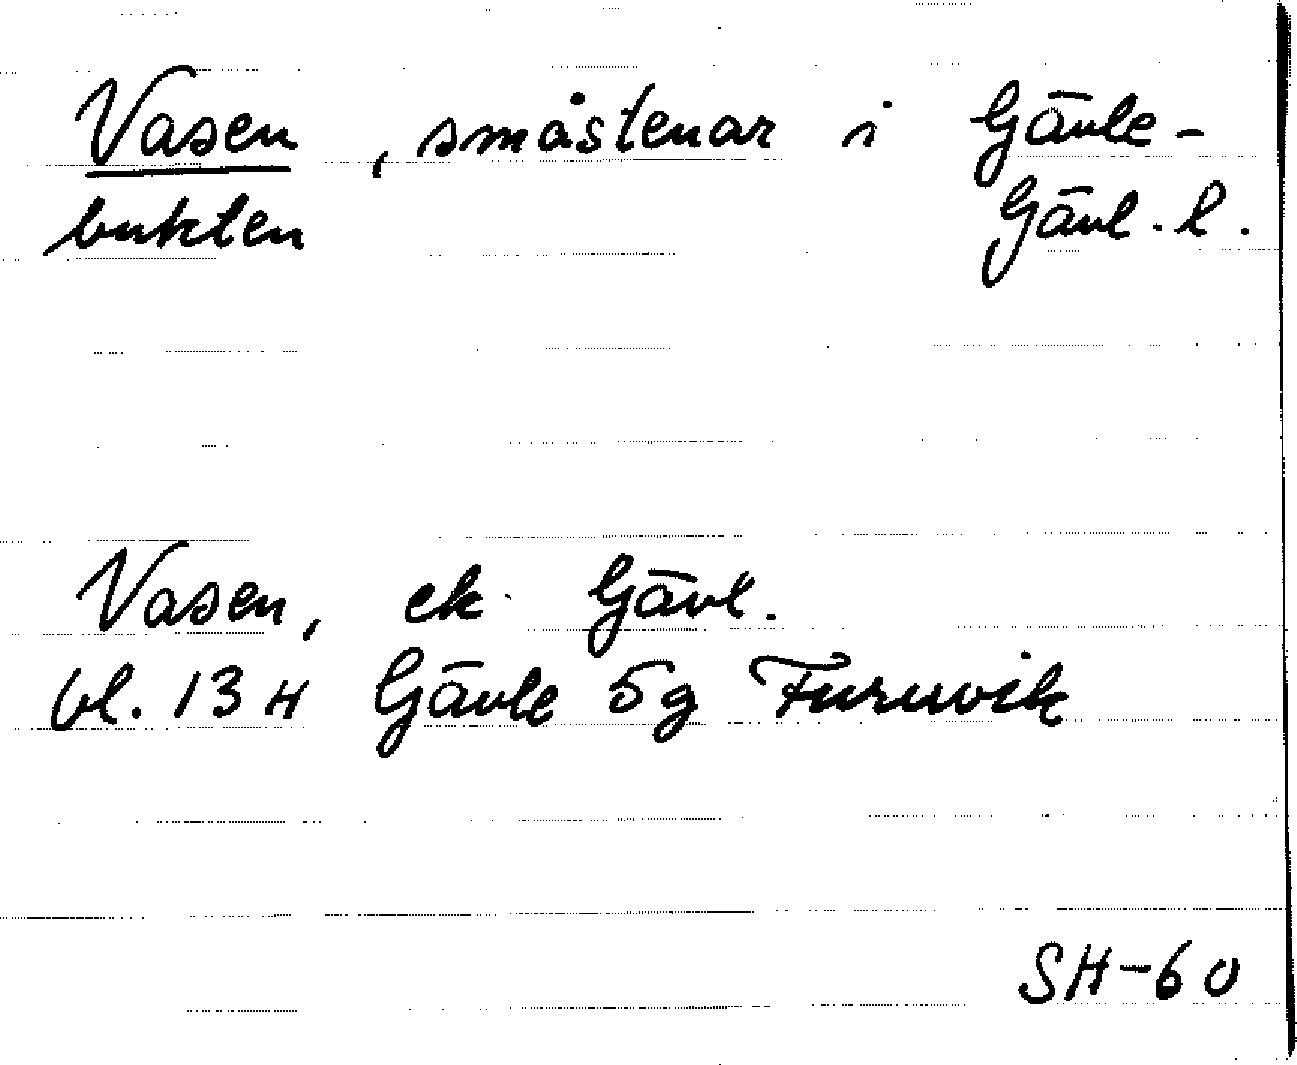 Vasen, småstenar i Gävle-
bukten Gävl. l.
Vasen, ek. Gävl.
bl. 13 H Gävle 5g Furuvik
SH-60